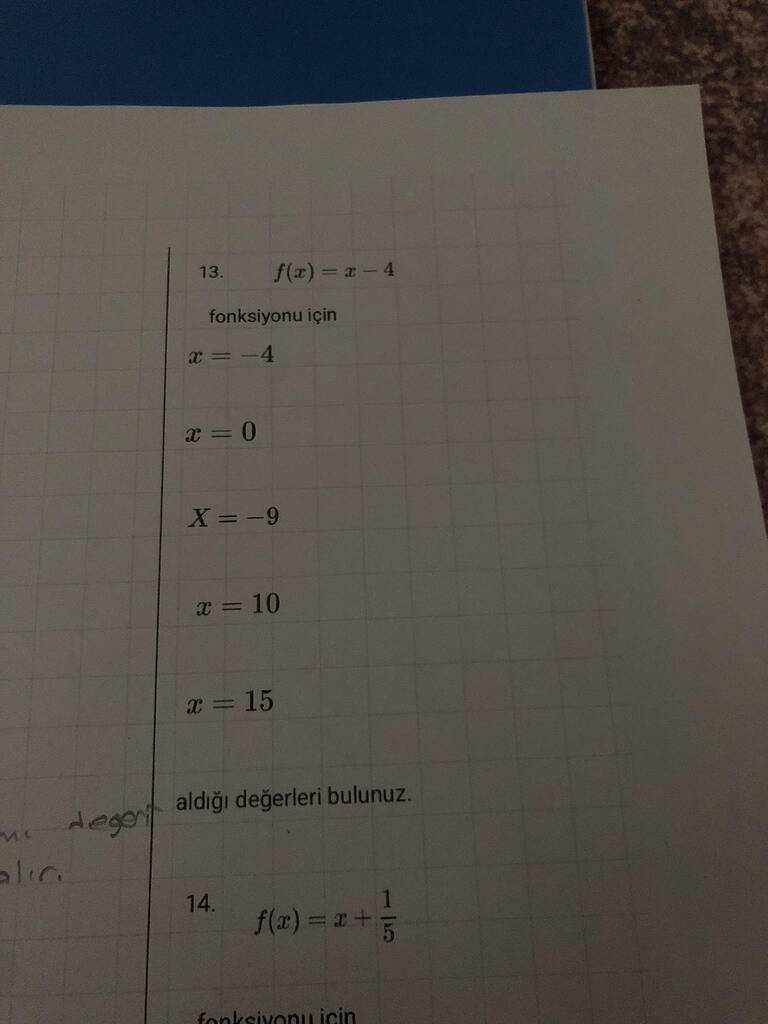 13. f(x) = x − 4
fonksiyonu için
x = −4
x = 0
X = −9
x = 10
x = 15
aldığı değerleri bulunuz.
değeri
alır.
14. f(x) = x + 1/5
fonksiyonu için